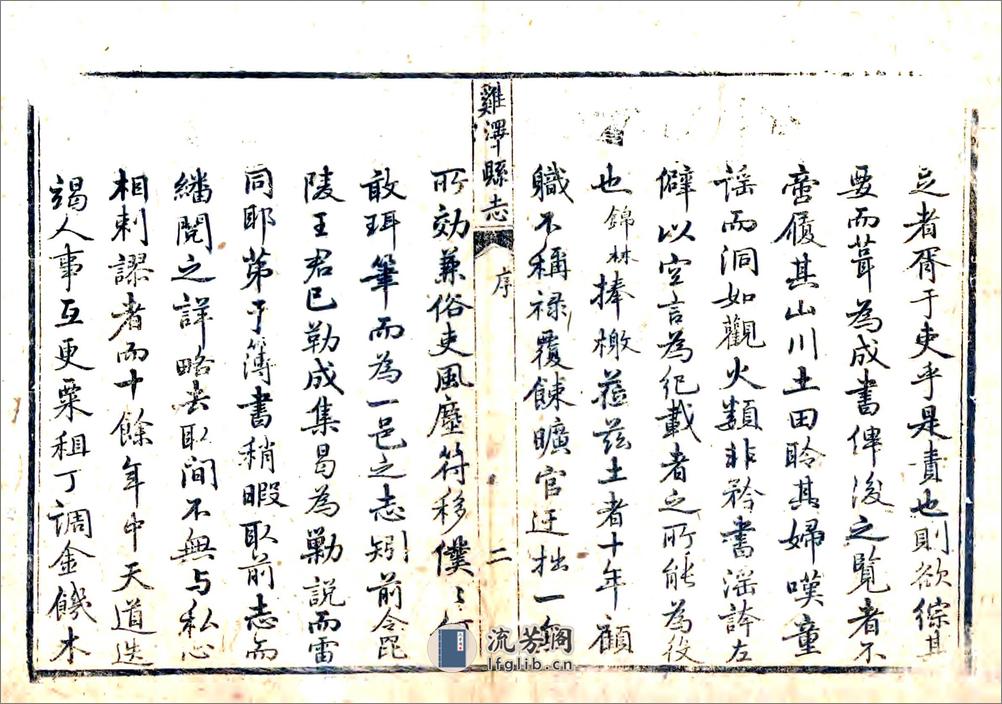 之者胥于吏乎是責也則欲綜其
要而葺為成書俾後之覽者不
啻履其山川土田聆其婦嘆童
謡而洞如觀火類非矜書滛誇左
僻以空言為紀載者之所能為役
也錦林捧檄蒞兹土者十年顧
職不稱禄覆餗曠官迂拙一無
所効兼俗吏風塵符移僕〻
敢珥筆而為一邑之志矧前令毘
陵王君已勒成集曷為勦說而雷
同耶第于簿書稍暇取前志而
繙閱之詳略去取间不無与私心
相刺謬者而十餘年中天道迭
竭人事互更粟租丁调金饑木
雞澤縣志
序
二
流芳阁
lfglib.cn